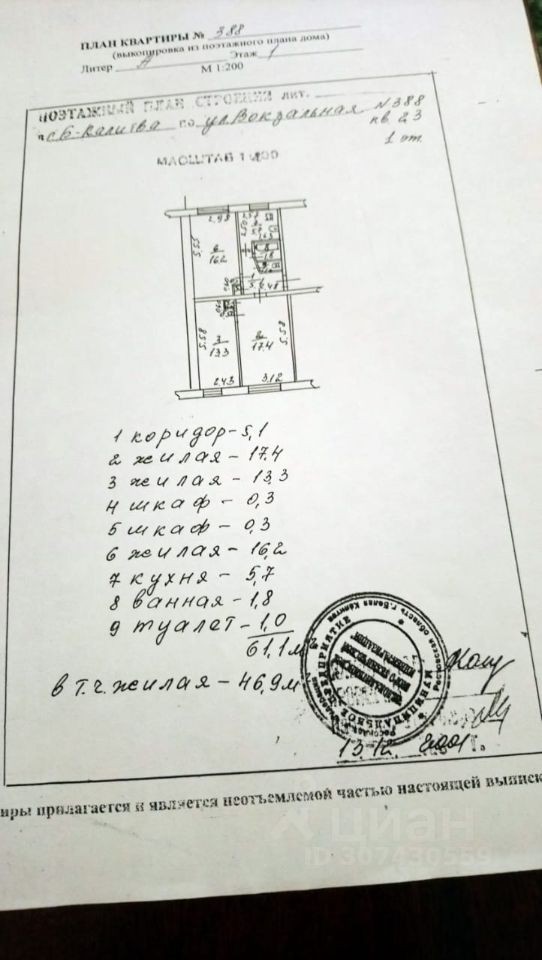 ПЛАН КВАРТИРЫ № 388
(выкопировка из поэтажного плана дома)
Литер А Этаж 1
М 1:200
ПОЭТАЖНЫЙ ПЛАН СТРОЕНИЯ лит.
в г. Б-Калитва по ул. Вокзальная N 388
кв. 23
1 эт.
МАСШТАБ 1
2,98
5,55
6
16,2
7
5,7
8
1,8
1
5,1
2,48
5,58
3
13,3
2
17,4
5,58
2,43
3,12
1 коридор - 5,1
2 жилая - 17.4
3 жилая - 13,3
4 шкаф - 0,3
5 шкаф - 0,3
6 жилая - 16,2
7 кухня - 5,7
8 ванная - 1,8
9 туалет - 1,0
61,1 м
в т.ч. жилая - 46,9 м
Ростовская область г. Белая Калитва
МУНИЦИПАЛЬНОЕ ПРЕДПРИЯТИЕ
13.12. 2001 г.
иры прилагается и является неотъемлемой частью настоящей выписк
циан
ID 307430559